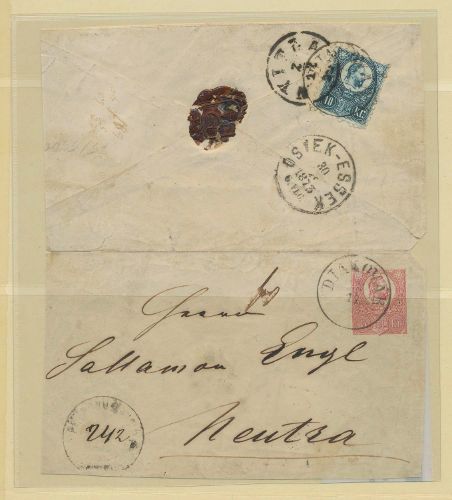 NYITRA
10 KR
OSIEK-ESSEK
30
1873
DIAKOVÁR
Herrn
Sallamon Engl
Neutra
242